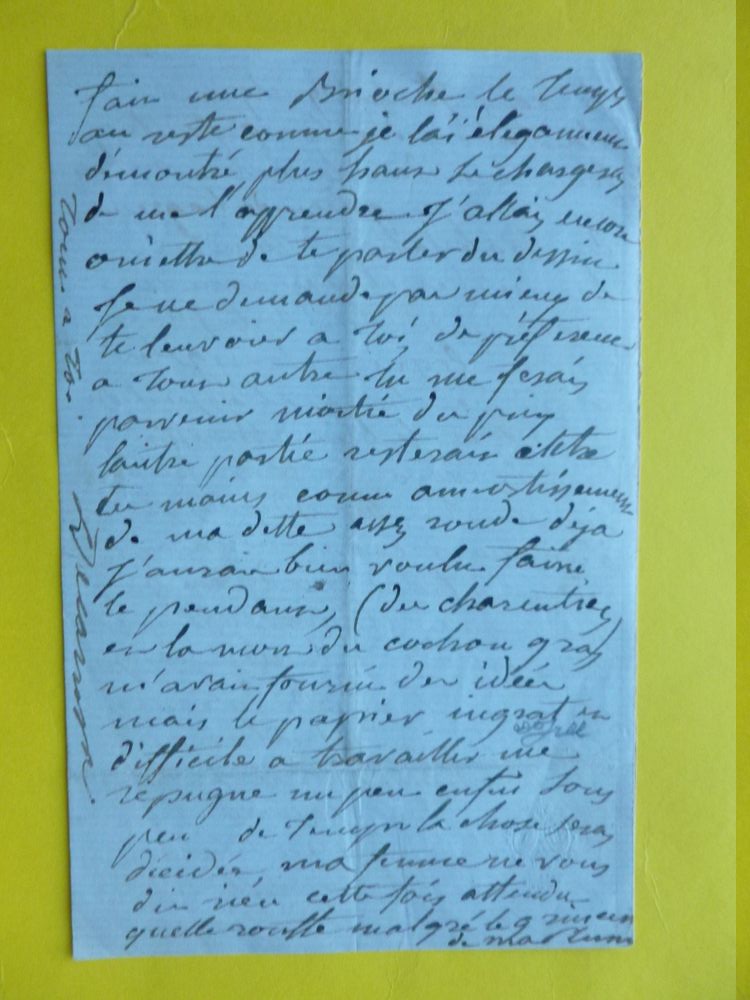 fair une Brioche le temps
au reste comme je l'ai élegamment
démontré plus haut se chargera
de me l'apprendre J'allais encore
omettre de te parler du dessin
Je ne demande pas mieux de
te l'envoier a toi de préférence
a tout autre tu me ferais
parvenir moitié du prix
lautre partie resterait entre
tes mains comme amortissement
de ma dette assez ronde déja
J'aurais bien voulu faire
le pendant, (du charentier)
en la mort du cochon gras
m'avait fourni des idées
mais le papier ingrat et
difficile a travailler me
repugne un peu enfin sous
peu de temps la chose sera
décidée ma femme ne vous
dit rien cette fois attendu
quelle ronfle malgré le
de ma plume
tout a toi.